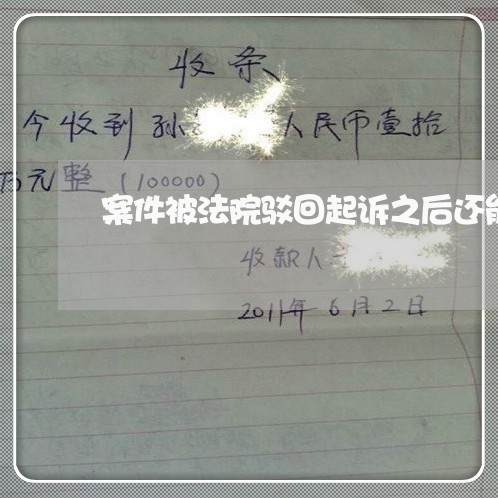 收条
今收到孙 人民币壹拾
万元整(100000)
案件被法院驳回起诉之后还能
收款人
2011年6月2日